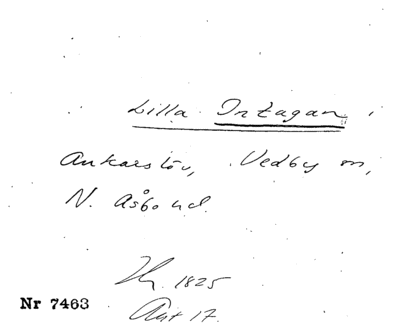 Lilla Intagan i
Ankarslöv, Vedby sn,
N. Åsbo hd.
1825
Nr 7463
Akt 17.